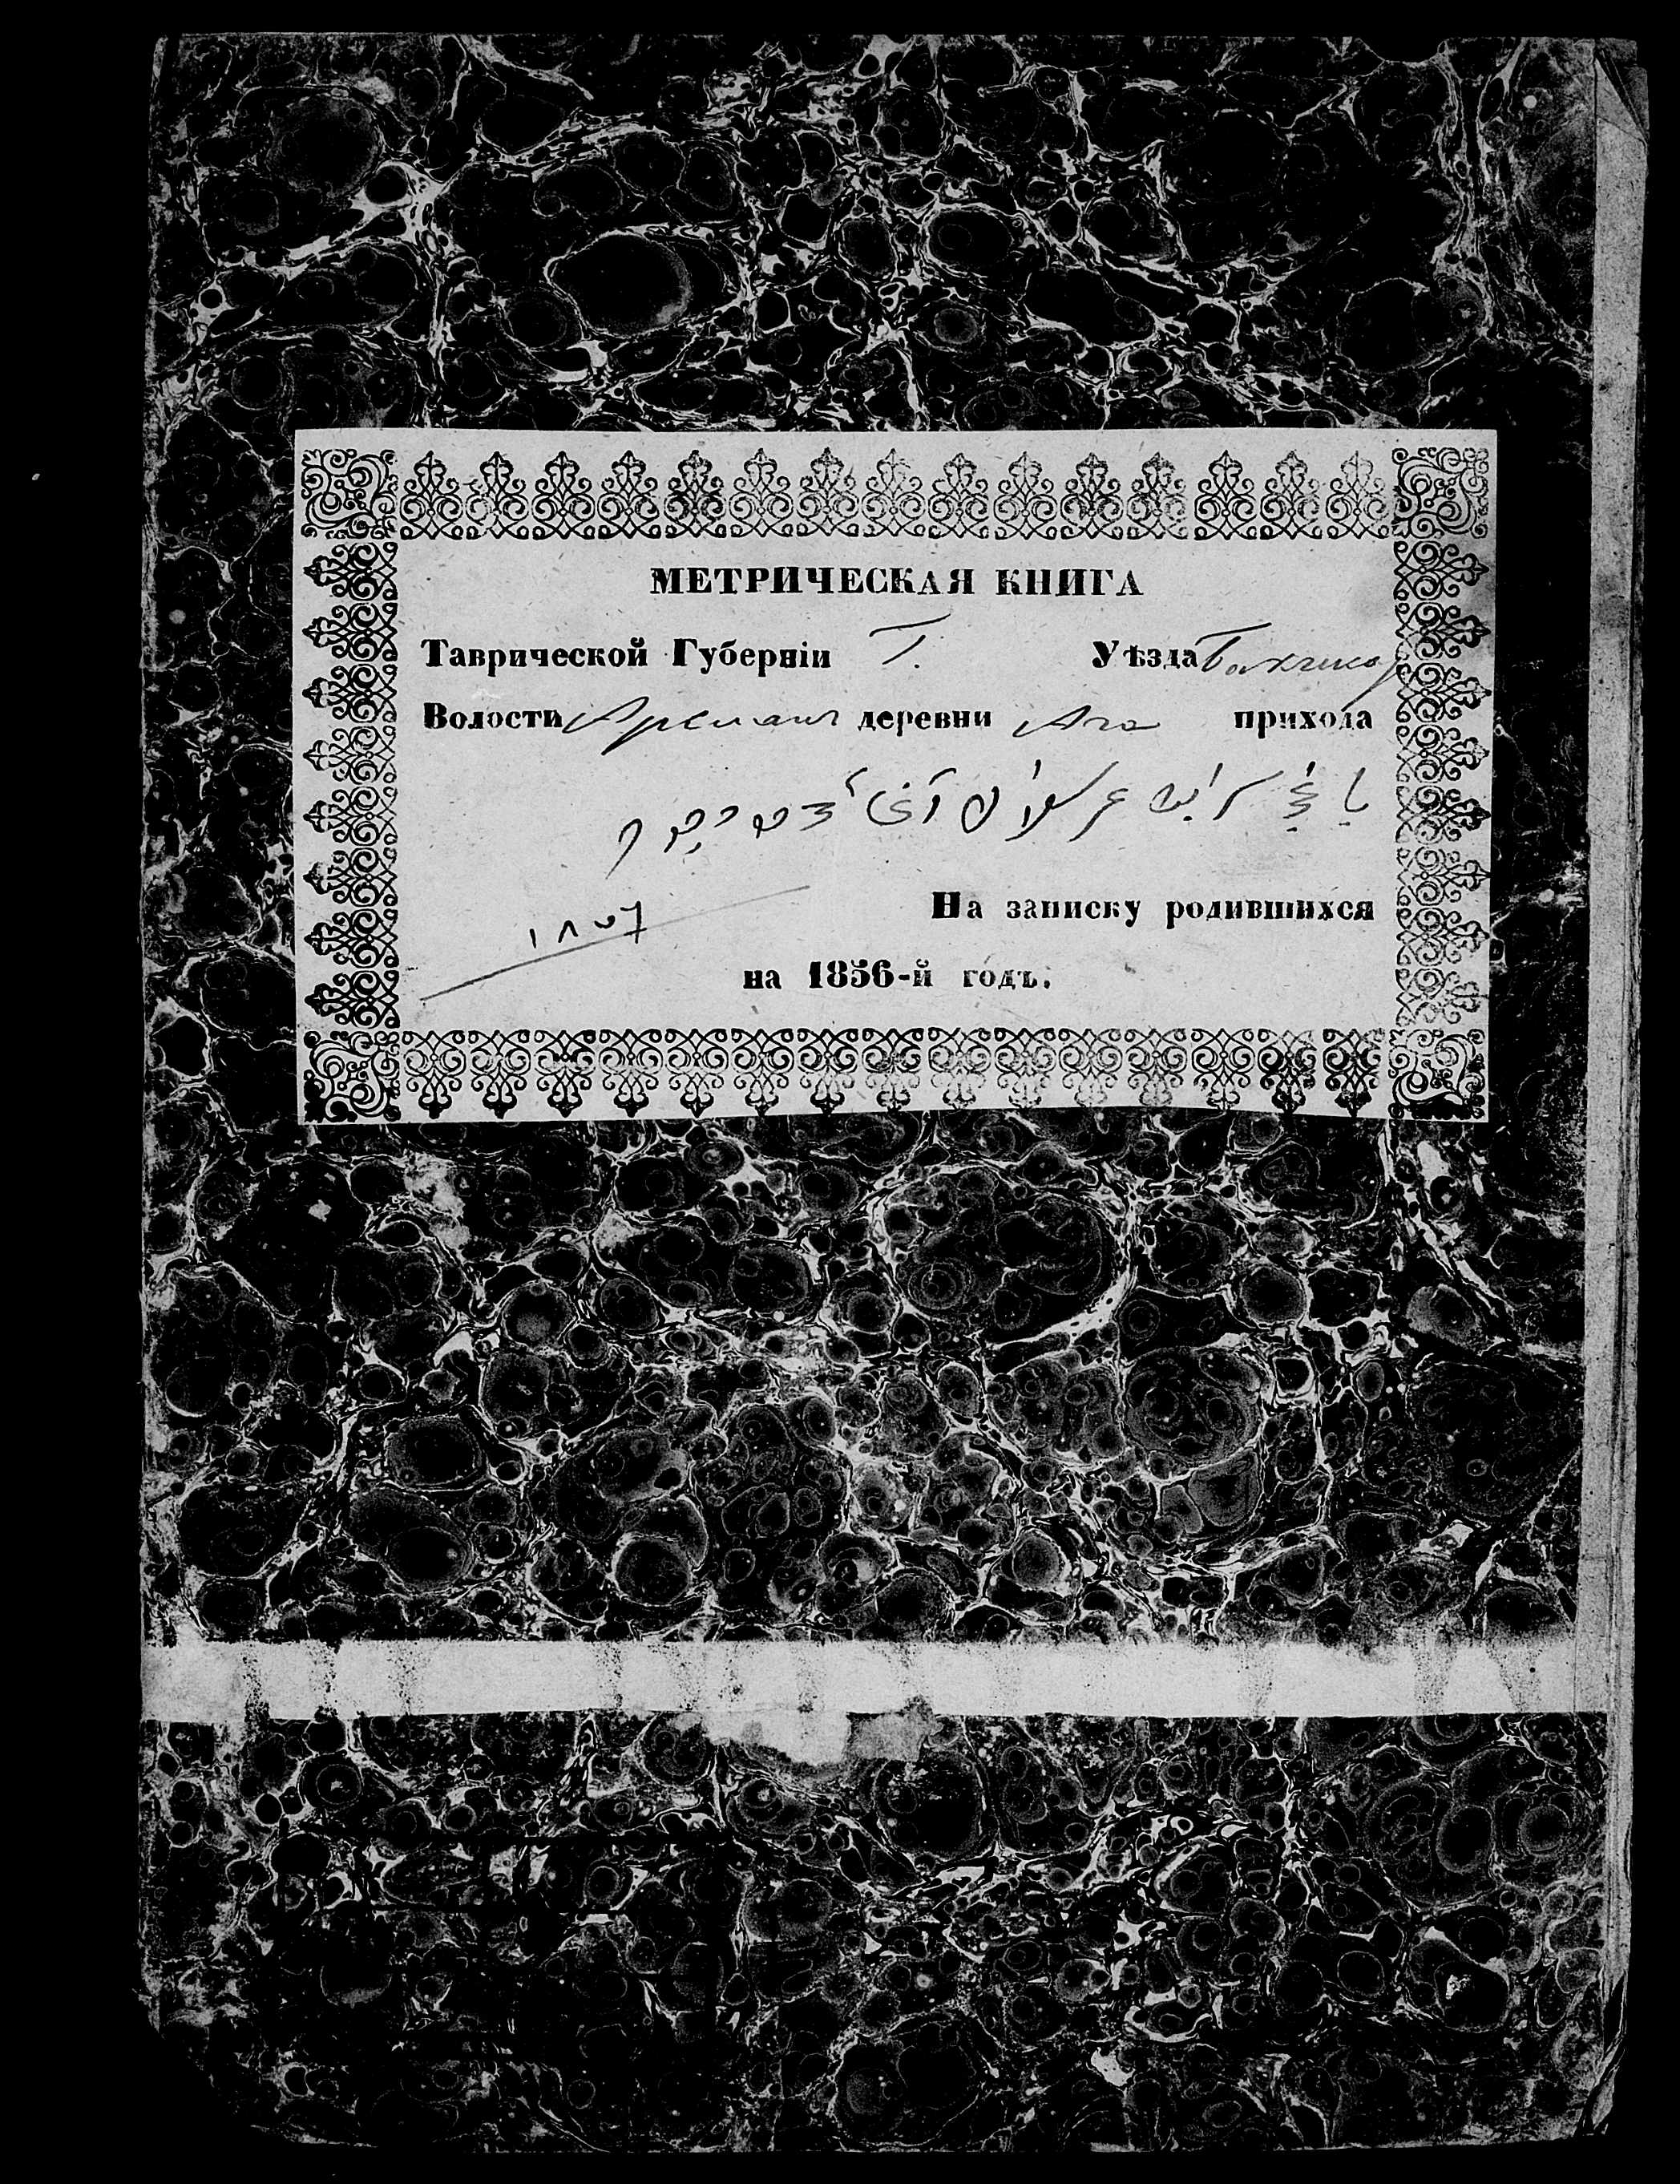 МЕТРИЧЕСКАЯ КНИГА
Таврической Губерніи Г. Уѣзда Бахчисар
Волости Арслан деревни Ага прихода
На записку родившихся
١٨٥٦
на 1856-й годъ.